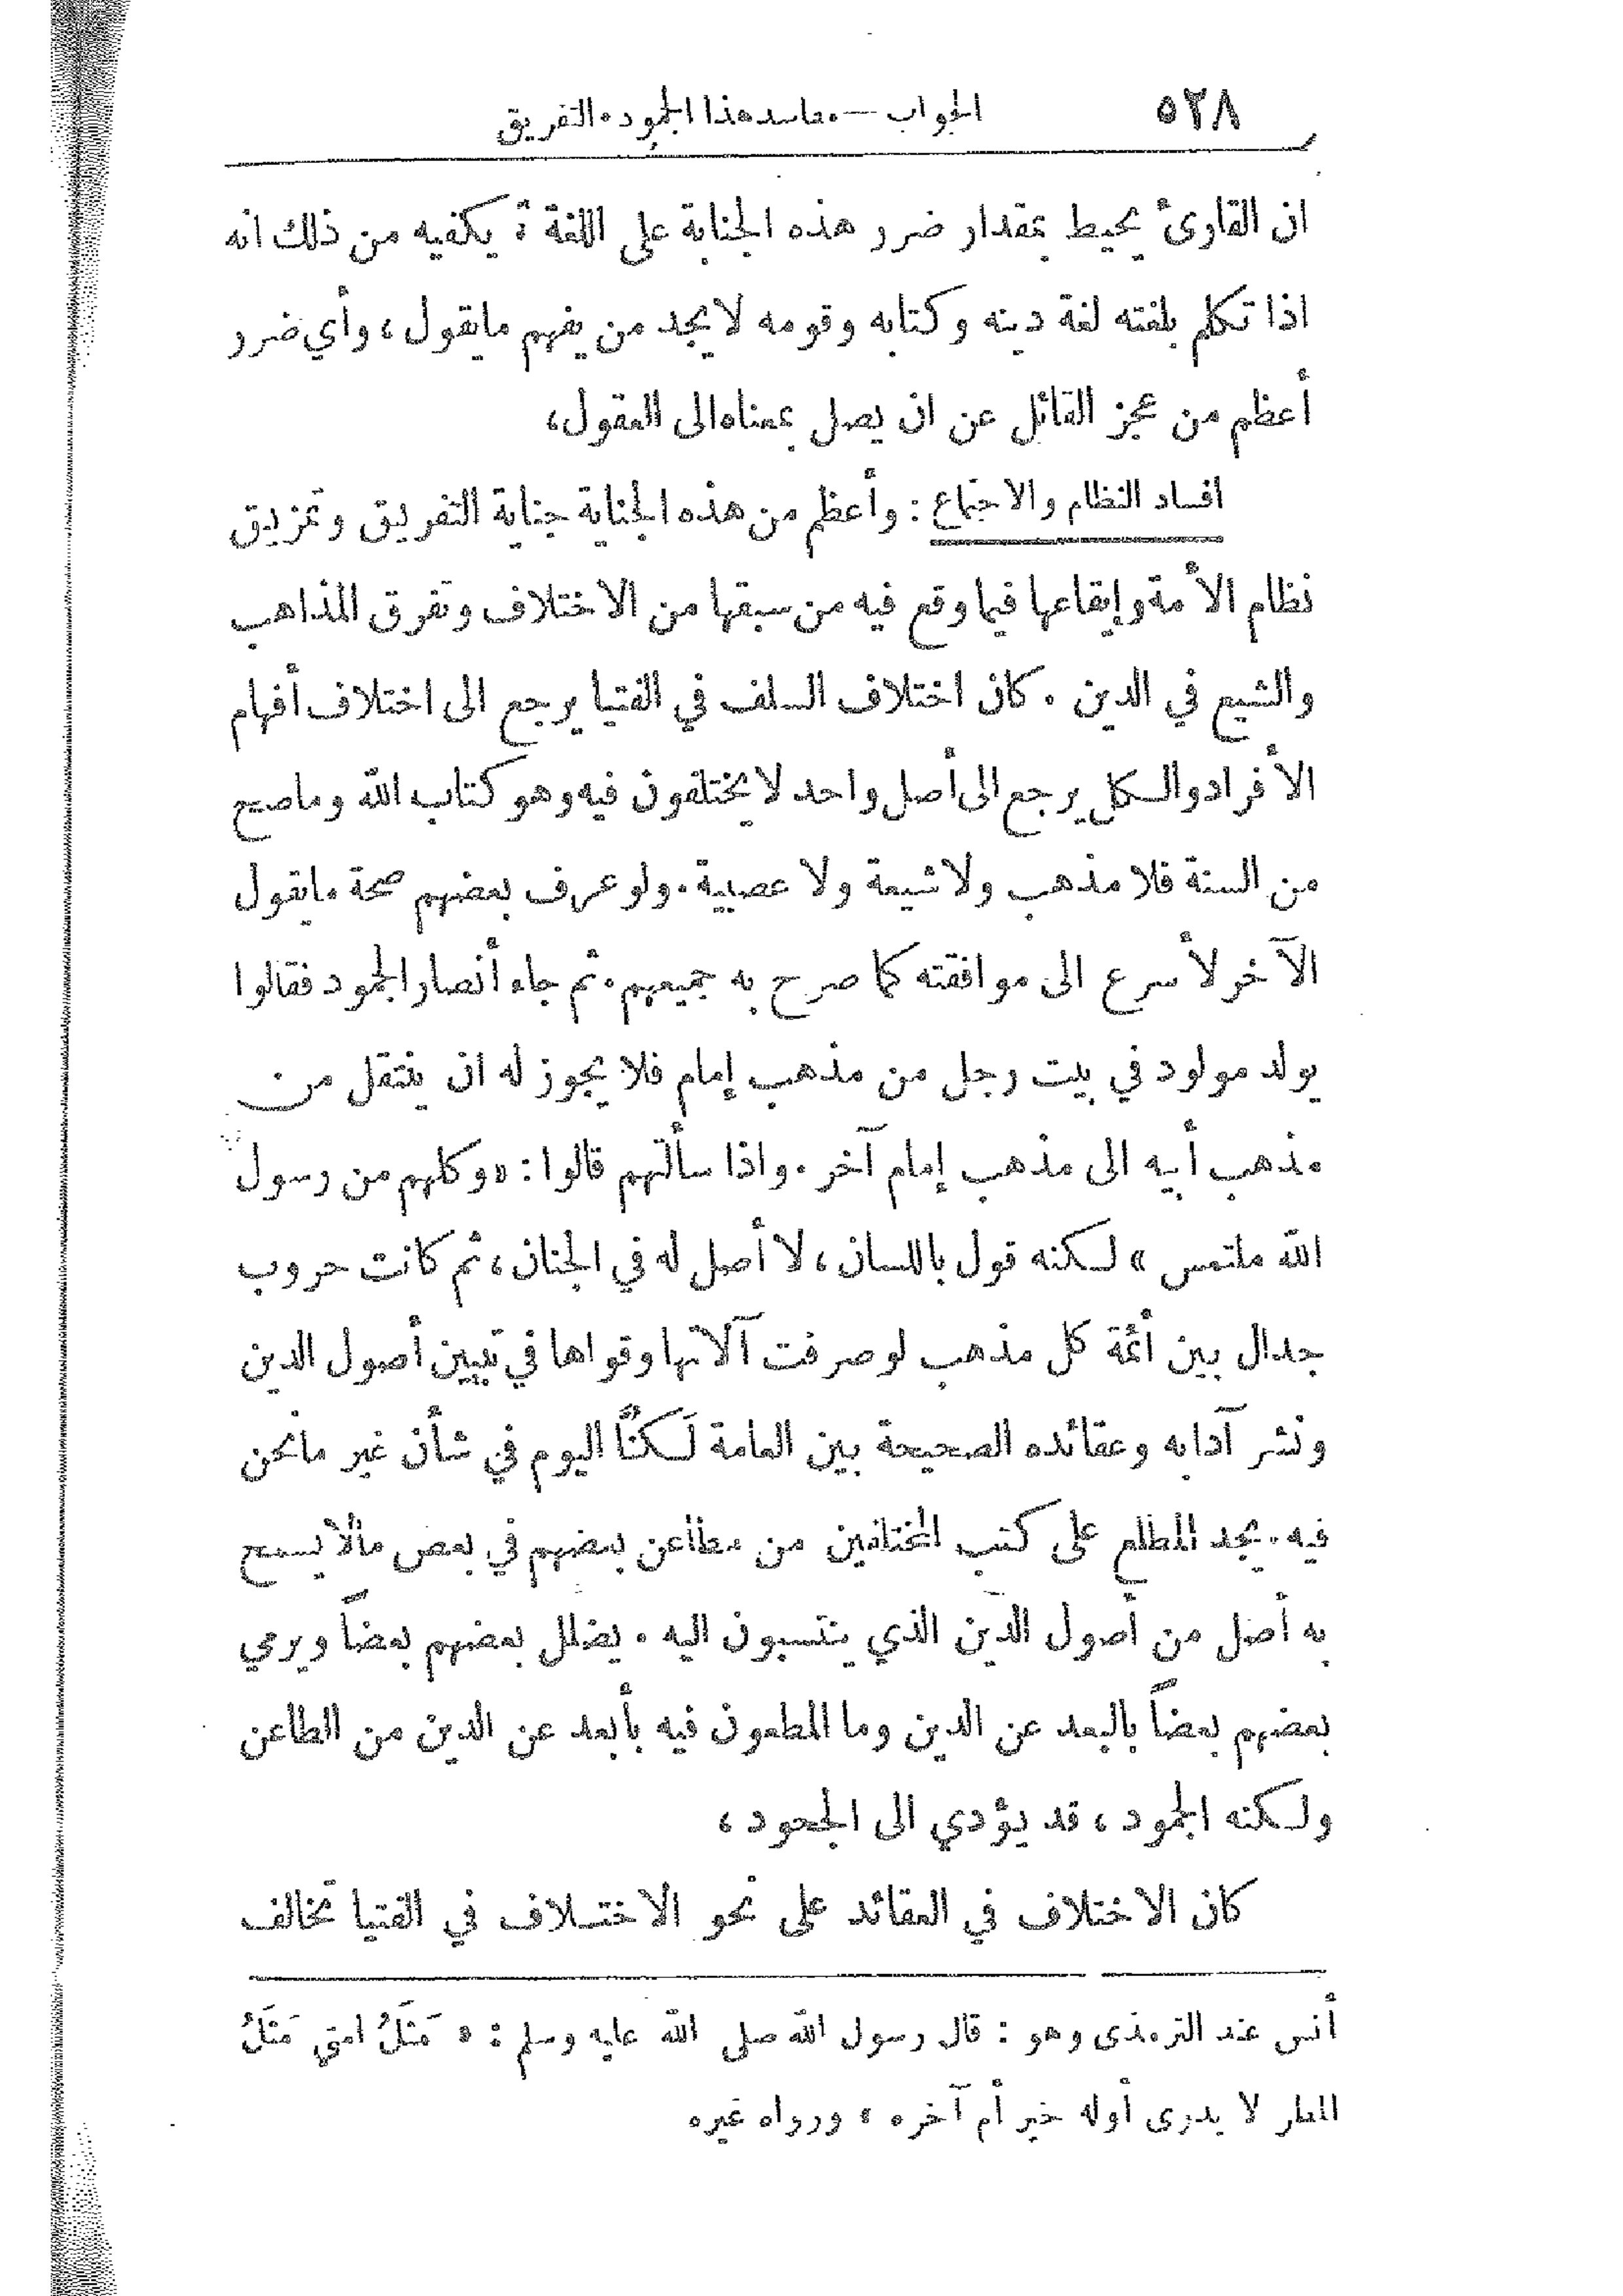 ٥٢٨
الجواب — مفاسد هذا الجمود. التفريق
ان القارئ يحيط بمقدار ضرر هذه الجناية على اللغة ؟ يكفيه من ذلك انه
اذا تكلم بلغته لغة دينه وكتابه وقومه لا يجد من يفهم ما يقول ، وأي ضرر
أعظم من عجز القائل عن ان يصل بمعناه الى العقول،
افساد النظام والاجتماع : وأعظم من هذه الجناية جناية التفريق وتمزيق
نظام الأمة وإيقاعها فيما وقع فيه من سبقها من الاختلاف وتفرق المذاهب
والشيع في الدين . كان اختلاف السلف في الفتيا يرجع الى اختلاف أفهام
الأفراد والكل يرجع الى أصل واحد لا يختلفون فيه وهو كتاب الله وما صح
من السنة فلا مذهب ولا شيعة ولا عصبية . ولو عرف بعضهم صحة ما يقول
الآخر لأسرع الى موافقته كما صرح به جميعهم . ثم جاء أنصار الجمود فقالوا
يولد مولود في بيت رجل من مذهب إمام فلا يجوز له ان ينتقل من
مذهب أبيه الى مذهب إمام آخر . واذا سألتهم قالوا : «وكلهم من رسول
الله ملتمس » لكنه قول باللسان ، لا أصل له في الجنان ، ثم كانت حروب
جدال بين أئمة كل مذهب لو صرفت آلاتها وقواها في تبيين أصول الدين
ونشر آدابه وعقائده الصحيحة بين العامة لَكنَّا اليوم في شأن غير ما نحن
فيه . يجد المطلع على كتب المختلفين من مطاعن بعضهم في بعض ما لا يسمح
به أصل من أصول الدين الذي ينتسبون اليه . يضلل بعضهم بعضاً ويرمي
بعضهم بعضاً بالبعد عن الدين وما المطعون فيه بأبعد عن الدين من الطاعن
ولكنه الجمود ، قد يؤدي الى الجحود ،
كان الاختلاف في العقائد على نحو الاختلاف في الفتيا تخالف
أنس عند الترمذى وهو : قال رسول الله صلى الله عليه وسلم : « مَثَلُ امتي مَثَلُ
المطر لا يدرى أوله خير أم آخره » ورواه غيره